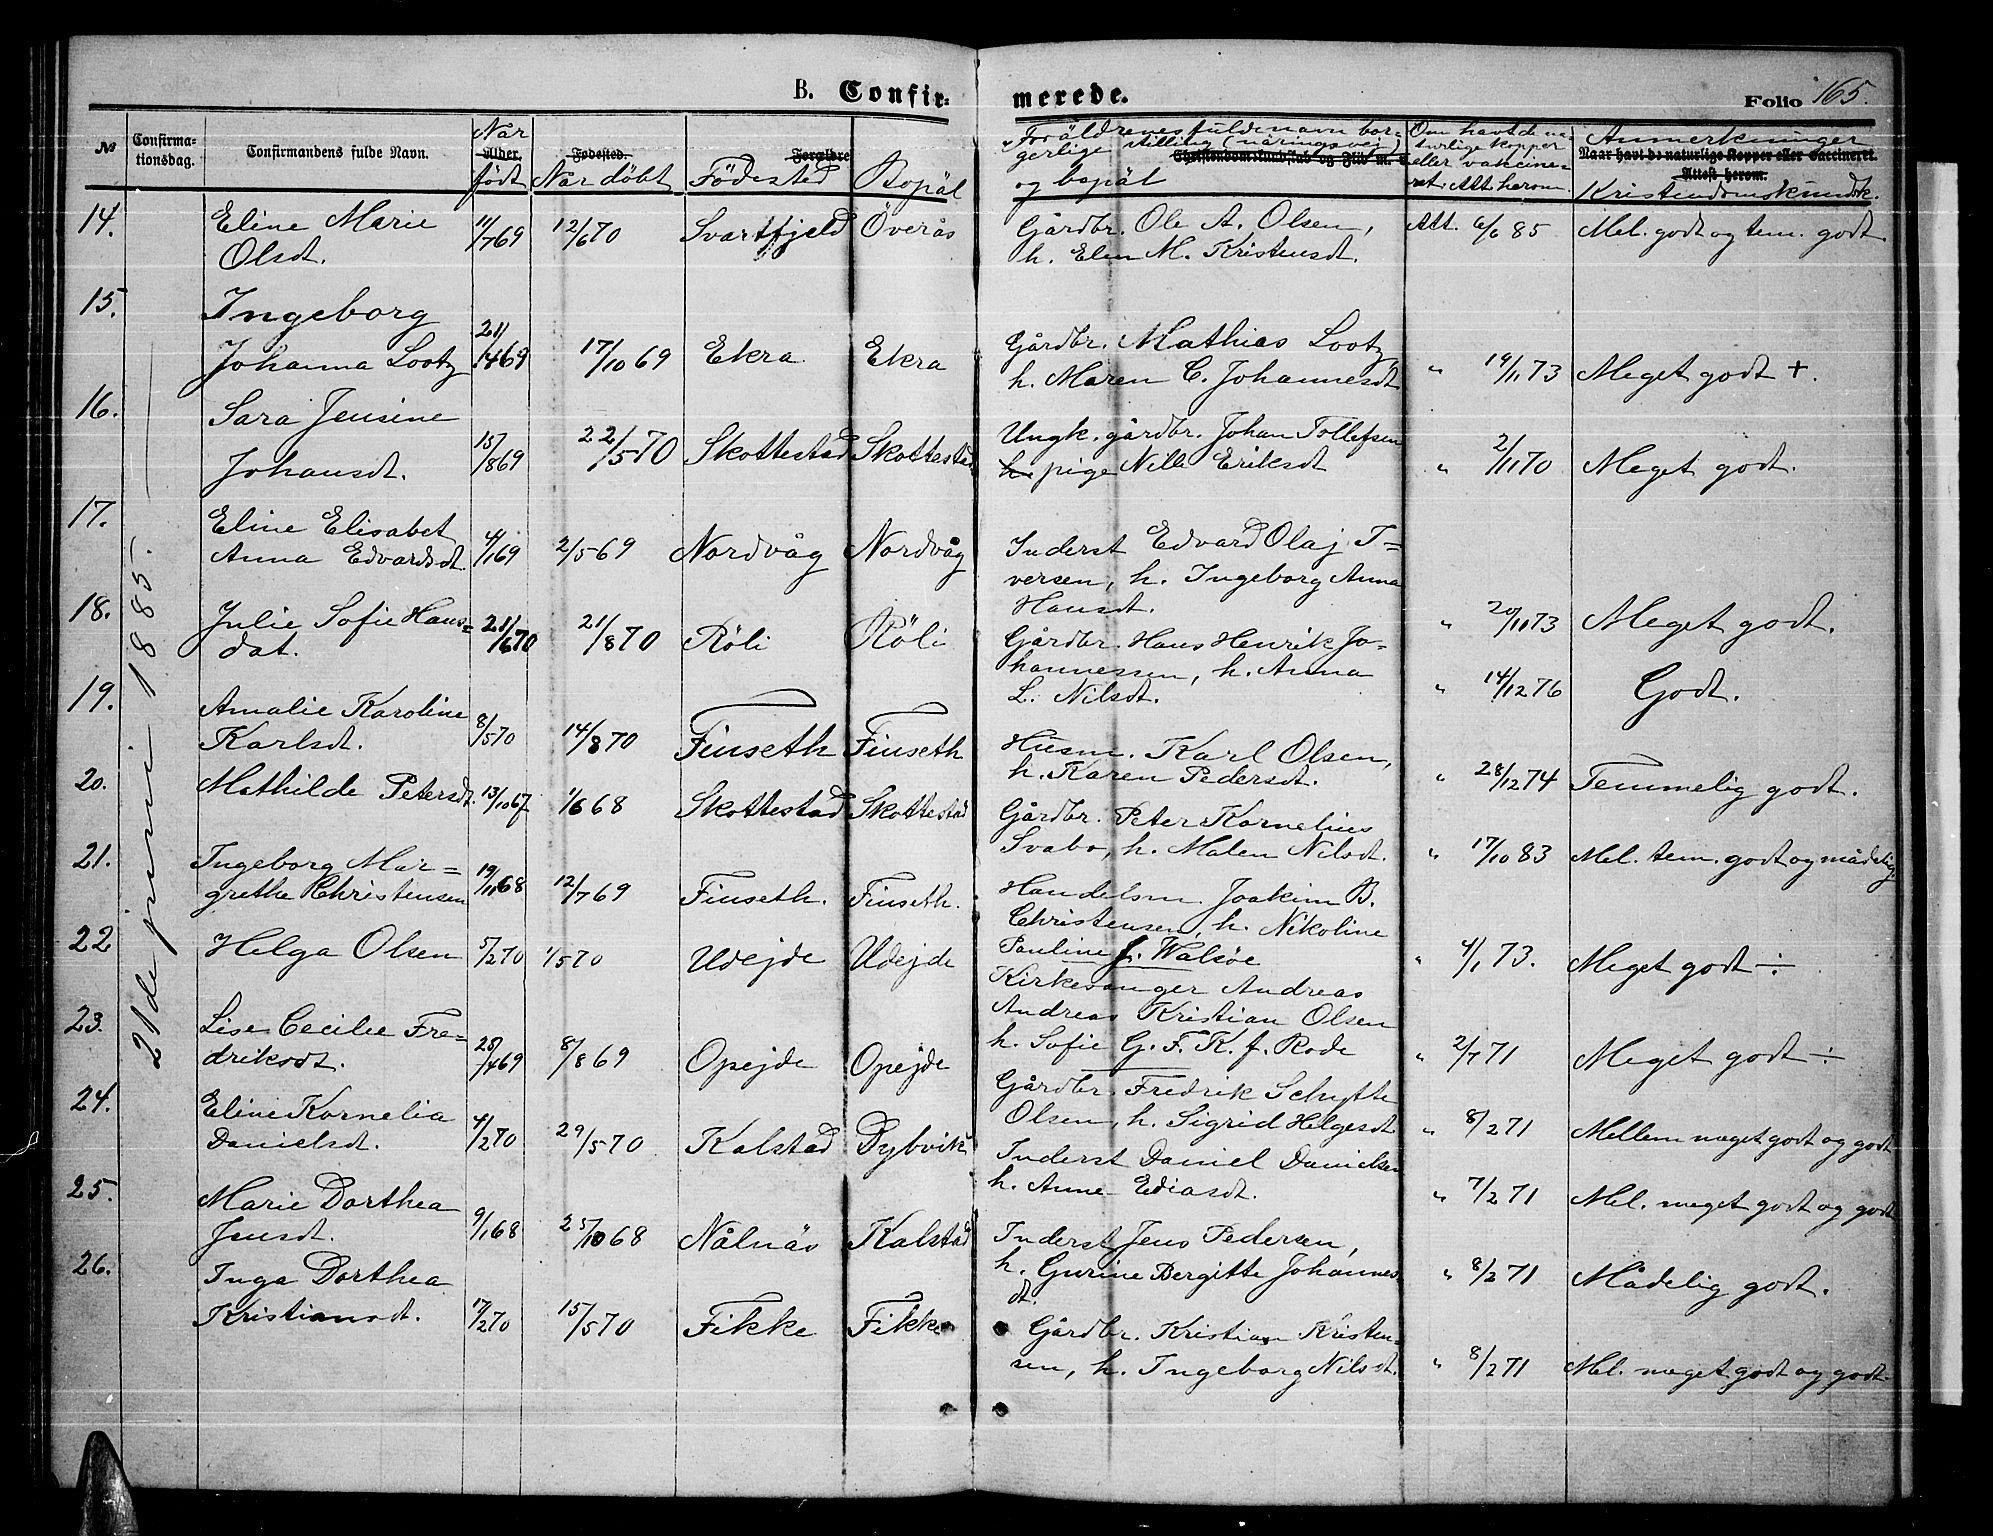 B. Confir-
merede.
Folio 165.
№
Confirma-
tionsdag.
Confirmandens fulde Navn.
Når
Alder.
født
Fødested.
När döbt
Forældre
Födested
Bopäl
Foräldrenes fulde navn bor-
gerlige stilling (näringsvej)
Christendomskundskab og Flid m. v.
og bopäl
Om havt de na-
turlige kopper
eller vaccine-
ret. Att. herom.
Anmerkninger
Naar havt de naturlige Kopper eller vaccineret.
Attest herom.
Kristendomskundsk.
21de juni 1885.
14. Eline Marie Olsdt. 11/769 12/670 Svartfjeld Överås Gårdbr. Ole A. Olsen, h. Elen M. Kristensdt. Att. 6/6 85 Mel. godt og tem. godt
15. Ingeborg Johanna Lootz 17/1069 Ekra Ekra Gårdbr. Mathias Lootz h. Maren C. Johannesdt " 19/1173 Meget godt +.
16. Sara Jensine Johansdt. 15/869 22/570 Skottestad Skottestad Ungk. gårdbr. Johan Tollefsen h. pige Nille Eriksdt " 2/1170 Meget godt.
17. Eline Elisabet Anna Edvardsdt. 4/169 2/569 Nordvåg Nordvåg Inderst Edvard Olaj I= versen, h. Ingeborg Anna Hansdt. " 20/1173 Meget godt.
18. Julie Sofie Hans= dat. 21/670 21/870 Röli Röli Gårdbr. Hans Henrik Jo= hannessen, h. Anna L. Nilsdt. " 14/1276 Godt.
19. Amalie Karoline Karlsdt. 8/570 14/870 Finseth Finseth Husm. Karl Olsen, h. Karen Pedersdt. " 28/1274 Temmelig godt.
20. Mathilde Petersdt. 13/1067 1/668 Skottestad Skottestad Gårdbr. Peter Kornelius Svabo, h. Malen Nilsdt. " 17/1083 Mel. tem. godt og mådelig
21. Ingeborg Mar= grethe Christensen 19/1168 12/769 Finseth. Finseth. Handelsm. Joakim B. Christensen, h. Nikoline Pauline f. Walsöe " 4/173. Meget godt ÷
22 Helga Olsen 5/270 1/570 Udejde Udejde Kirkesanger Andreas Andreas Kristian Olsen h. Sofie G. F. K. f. Rode " 2/771 Meget godt ÷
23. Lise Cecilie Fre= driksdt. 25/469 8/869 Opejde Opejde Gårdbr. Fredrik Schytte Olsen, h. Sigrid Helgesdt " 8/271 Mellem meget godt og godt
24. Eline Kornelia Danielsdt. 4/270 29/570 Kalstad Dybvik Inderst Daniel Danielsen h. Anne Ediasdt. " 7/271 Mel. meget godt og godt
25. Marie Dorthea Jensdt. 9/168 25/1068 Nålnäs Kalstad Inderst Jens Pedersen, h. Gurine Bergitte Johannes dt. " 8/271 Mådelig godt.
26. Inga Dorthea Kristiansdt. 17/270 15/570 Fikke Fikke Gårdbr. Kristian Kristen= sen, h. Ingeborg Nilsdt. " 8/271 Mel. meget godt og godt.